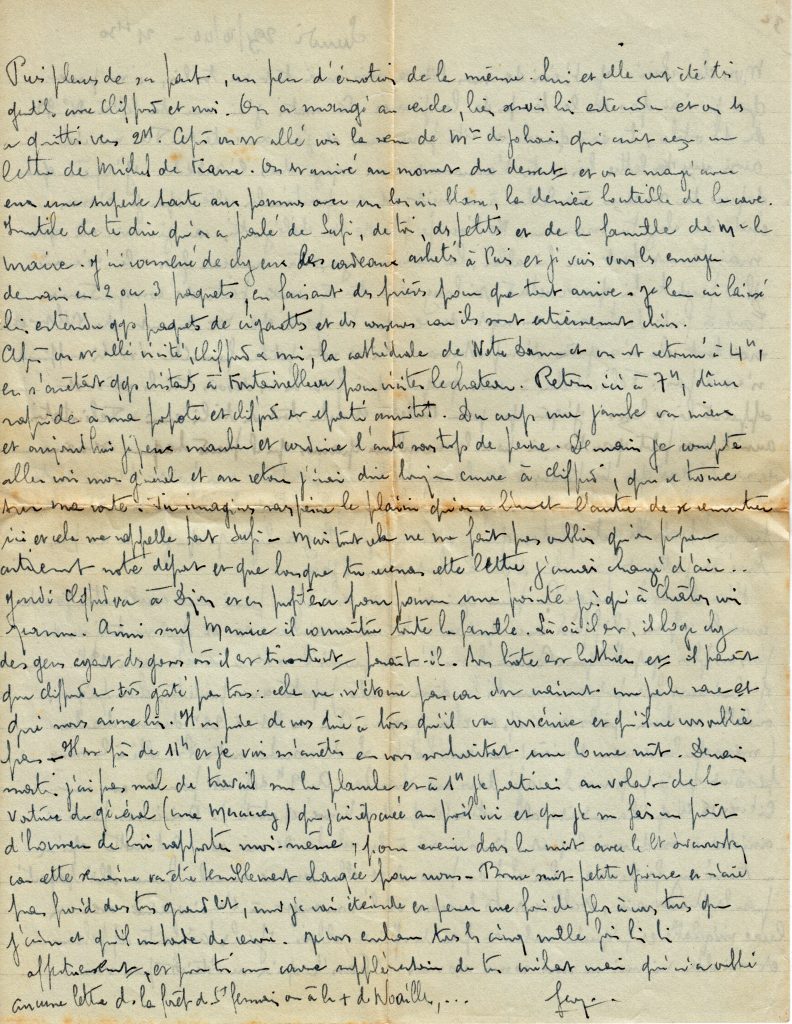 Puis pleurs de sa part, un peu d'émotion de la mienne. Lui et elle ont été très
gentils avec Clifford et moi. On a mangé au cercle, bien servis bien entendu et on les
a quittés vers 2h. Après on est allé voir la sœur de Mme de qui avait reçu une
lettre de Michel de France. On est arrivé au moment du dessert et on a mangé avec
eux une superbe tarte aux pommes avec un bon vin blanc, la dernière bouteille de la cave.
Inutile de te dire qu'on a parlé de Sufi, de toi, des petits et de la famille de Mr le
Maire. J'ai ramené de chez eux des cordeaux achetés à Paris et je vais vous les envoyer
demain en 2 ou 3 paquets, en faisant des prières pour que tout arrive. Je leur ai laissé
bien entendu qqs paquets de cigarettes et des car ils sont extrêmement chers.
Après on est allé visiter, Clifford & moi, la cathédrale de Notre Dame et on est retourné à 4h,
en s'arrêtant qqs instants à Fontainebleau pour visiter le chateau. Retour ici à 7h, dîner
rapide à ma popote et Clifford est reparti aussitôt. Du coup ma jambe va mieux
et aujourd'hui je peux marcher et conduire l'auto sans trop de peine. Demain je compte
aller voir mon général et au retour j'irai dire bonjour encore à Clifford, qui se trouve
sur ma route. Tu imagines sans peine le plaisir qu'on a l'un et l'autre de se rencontrer
ici et cela me rappelle tant Sufi - Mais tout cela ne me fait pas oublier qu'on prépare
activement notre départ et que lorsque tu recevras cette lettre j'aurai changé d'air...
Jeudi Clifford va à Dijon et en profitera pour pousser une pointe jusqu'à Châlon voir
Jeanne. Ainsi sauf Maurice il connaîtra toute la famille. Là où il est, il loge chez
des gens ayant des gosses où il est très content paraît-il. Son hôte est luthier et il paraît
que Clifford est très gâté par tous: cela ne m'étonne pas car c'est vraiment une perle rare et
qui nous aime bien. Il me prie de vous dire à tous qu'il va vous écrire et qu'il ne vous oublie
pas - Il est près de 11h et je vais m'arrêter en vous souhaitant une bonne nuit. Demain
matin j'ai pas mal de travail sur la planche et à 1h je partirai au volant de la
voiture du général (une Mercury) que j'ai réparée au poil ici et que je me fais un point
d'honneur de lui rapporter moi-même, pour revenir dans la nuit avec le Lt
car cette semaine va être terriblement chargée pour nous - Bonne nuit petite Yvonne et n'aie
pas froid dans ton grand lit, moi je vais éteindre et penser une fois de plus à vous tous que
j'aime et qu'il me tarde de revoir. Je vous embrasse tous les cinq mille fois bien bien
affectueusement, et pour toi une caresse supplémentaire de ton méchant mari qui n'a oublié
aucune lettre de la forêt de St Germain ou à la + de Noailles,...